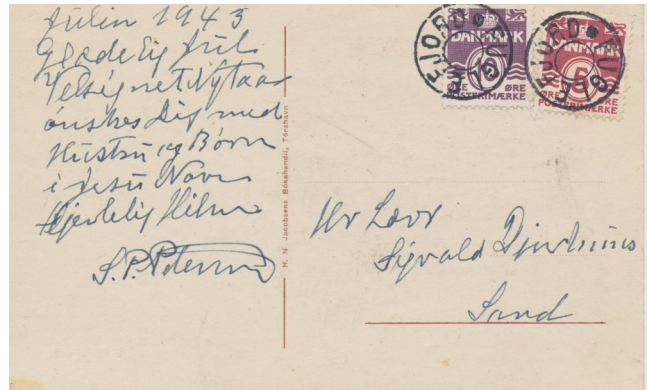 Julin 1943
Glædelig Jul
Velsignet Nytaar
ønskes Dig med
Hustru og Børn
i Jesu Navn
Hjertelig Hilsen
S. P. Petersen
H. N. Jacobsens Bókahandil, Tórshavn
FUGLEFJORD
DANMARK
10
ØRE
POSTFRIMÆRKE
FUGLEFJORD
DANMARK
5
ØRE
POSTFRIMÆRKE
Hr Lærer
Sigvald Djurhuus
Sand